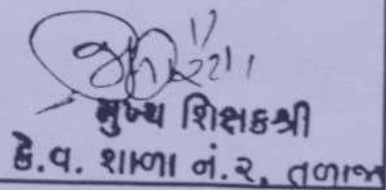 મુખ્ય શિક્ષકશ્રી
કે.વ. શાળા નં.૨, તળાજા